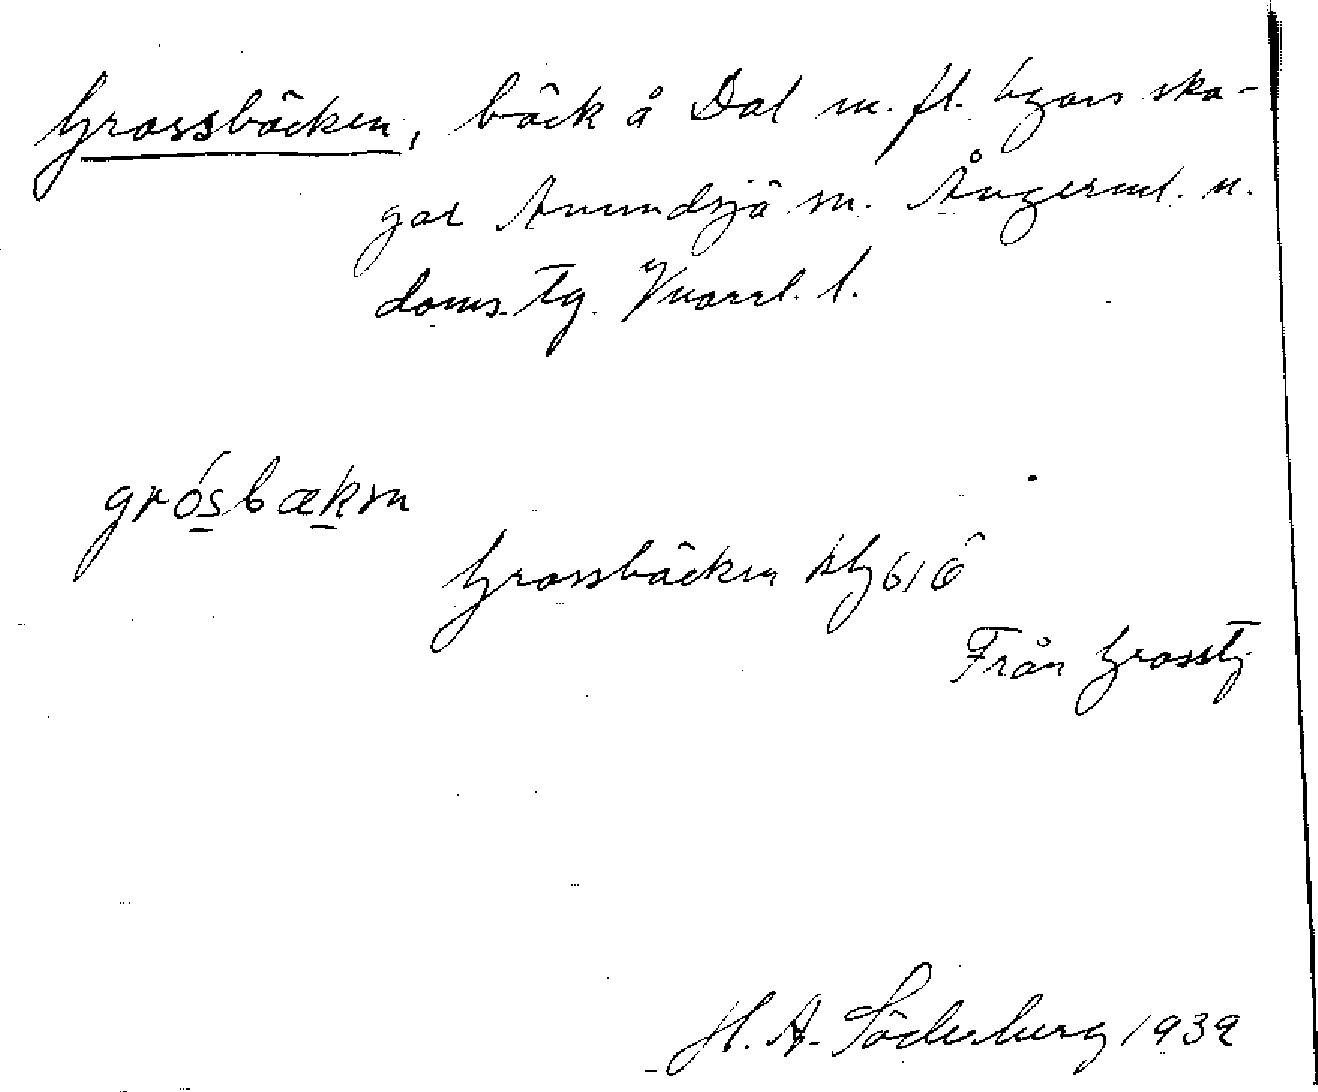 Grossbäcken, bäck å Dal m. fl. byars sko-
gar Anundsjö sn. Ångerml. n.
doms. tg. Vnorrl. l.
grósbækən
Grossbäcken AK 61 Ö
Från Grosstj
H. A. Söderberg 1939